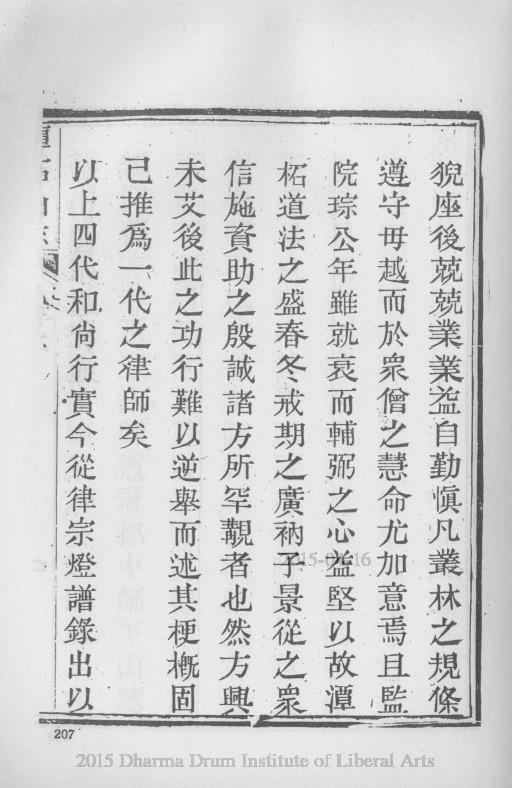 猊座後兢兢業業益自勤愼凡叢林之規條
遵守毋越而於衆僧之慧命尤加意焉且監
院琮公年雖就衰而輔弼之心益堅以故潭
柘道法之盛春冬戒期之廣衲子景從之衆
信施資助之殷誠諸方所罕覯者也然方興
未艾後此之功行難以逆舉而述其梗槪固
已推爲一代之律師矣
以上四代和尙行實今從律宗燈譜錄出以
207
2015 Dharma Drum Institute of Liberal Arts